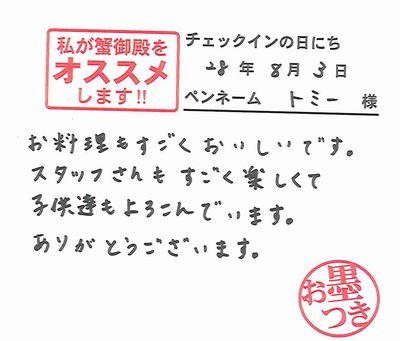 私が蟹御殿を
オススメ
します!!
チェックインの日にち
28年8月3日
ペンネーム トミー 様
お料理もすごくおいしいです。
スタッフさんもすごく楽しくて
子供達もよろこんでいます。
ありがとうございます。
お墨つき